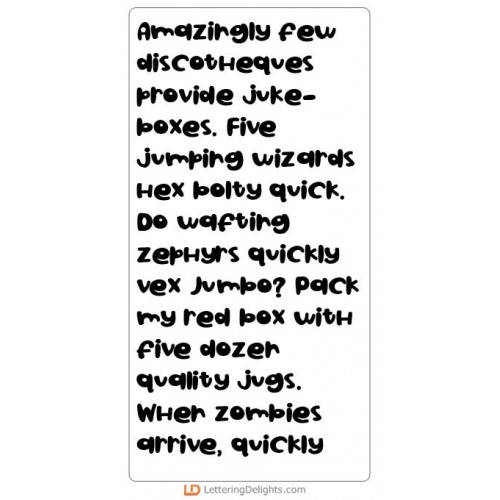 Amazingly few
discotheques
provide juke-
boxes. Five
jumping wizards
hex bolty quick.
Do wafting
zephyrs quickly
vex Jumbo? Pack
my red box with
five dozen
quality jugs.
When zombies
arrive, quickly
LD LetteringDelights.com